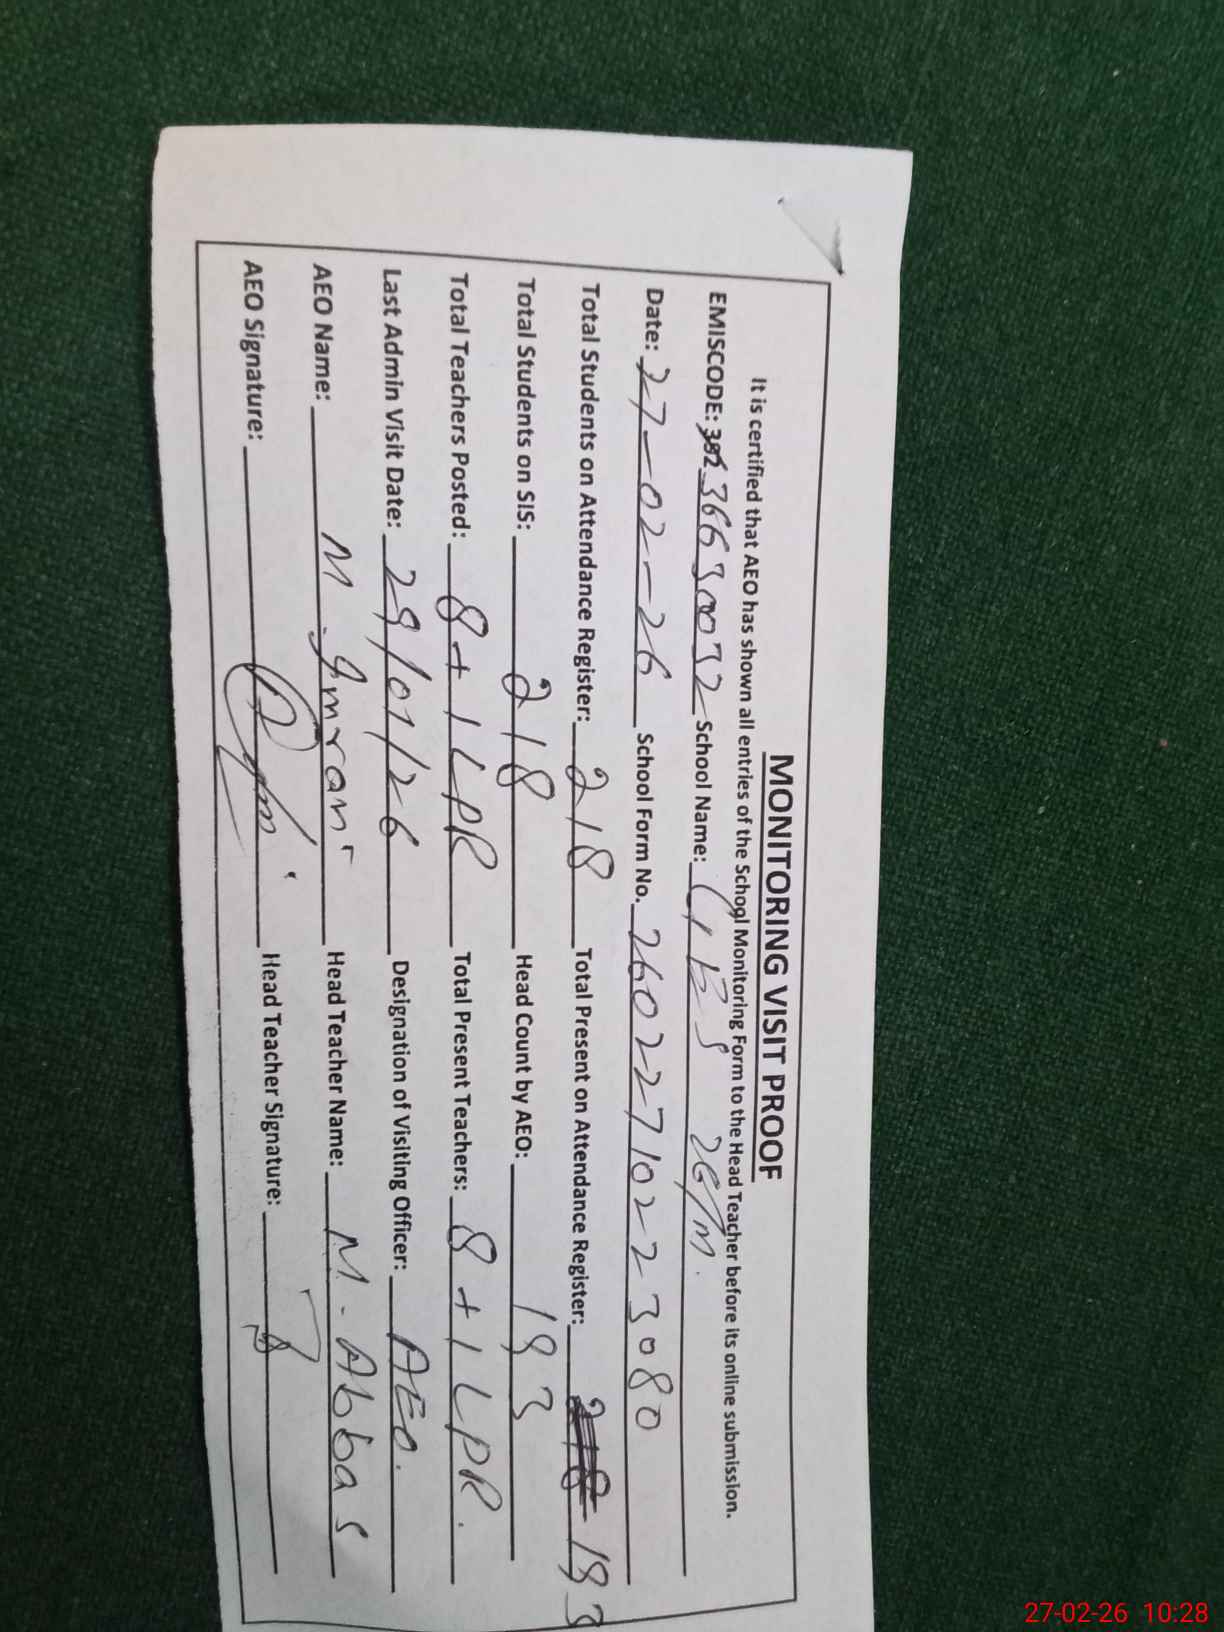 MONITORING VISIT PROOF
It is certified that AEO has shown all entries of the School Monitoring Form to the Head Teacher before its online submission.
EMISCODE: 36630032 School Name: GES 2G/M.
Date: 27-02-26 School Form No. 2602271022 3080
Total Students on Attendance Register: 218 Total Present on Attendance Register: 218 193
Total Students on SIS: 218 Head Count by AEO: 193
Total Teachers Posted: 8+1 LPR Total Present Teachers: 8+1 LPR.
Last Admin Visit Date: 29/01/26 Designation of Visiting Officer: AEO.
AEO Name: M. Imran Head Teacher Name: M. Abbas
AEO Signature: Head Teacher Signature:
27-02-26 10:28